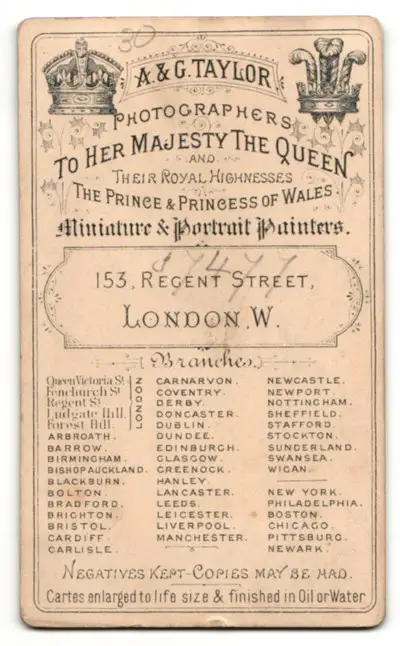 30
A. & G. TAYLOR.
PHOTOGRAPHERS
TO HER MAJESTY THE QUEEN
AND
THEIR ROYAL HIGHNESSES
THE PRINCE & PRINCESS OF WALES.
Miniature & Portrait Painters.
153, REGENT STREET,
LONDON, W.
Branches.
Queen Victoria St.
Fenchurch St
Regent St.
Ludgate Hill.
Forest Hill.
LONDON
ARBROATH.
BARROW.
BIRMINGHAM.
BISHOP AUCKLAND.
BLACKBURN.
BOLTON.
BRADFORD.
BRIGHTON.
BRISTOL.
CARDIFF.
CARLISLE.
CARNARVON.
COVENTRY.
DERBY.
DONCASTER.
DUBLIN.
DUNDEE.
EDINBURGH.
GLASGOW.
GREENOCK.
HANLEY.
LANCASTER.
LEEDS.
LEICESTER.
LIVERPOOL.
MANCHESTER.
NEWCASTLE.
NEWPORT.
NOTTINGHAM.
SHEFFIELD.
STAFFORD.
STOCKTON.
SUNDERLAND.
SWANSEA.
WIGAN.
NEW YORK.
PHILADELPHIA.
BOSTON.
CHICAGO.
PITTSBURG.
NEWARK.
NEGATIVES KEPT-COPIES MAY BE HAD.
Cartes enlarged to life size & finished in Oil or Water